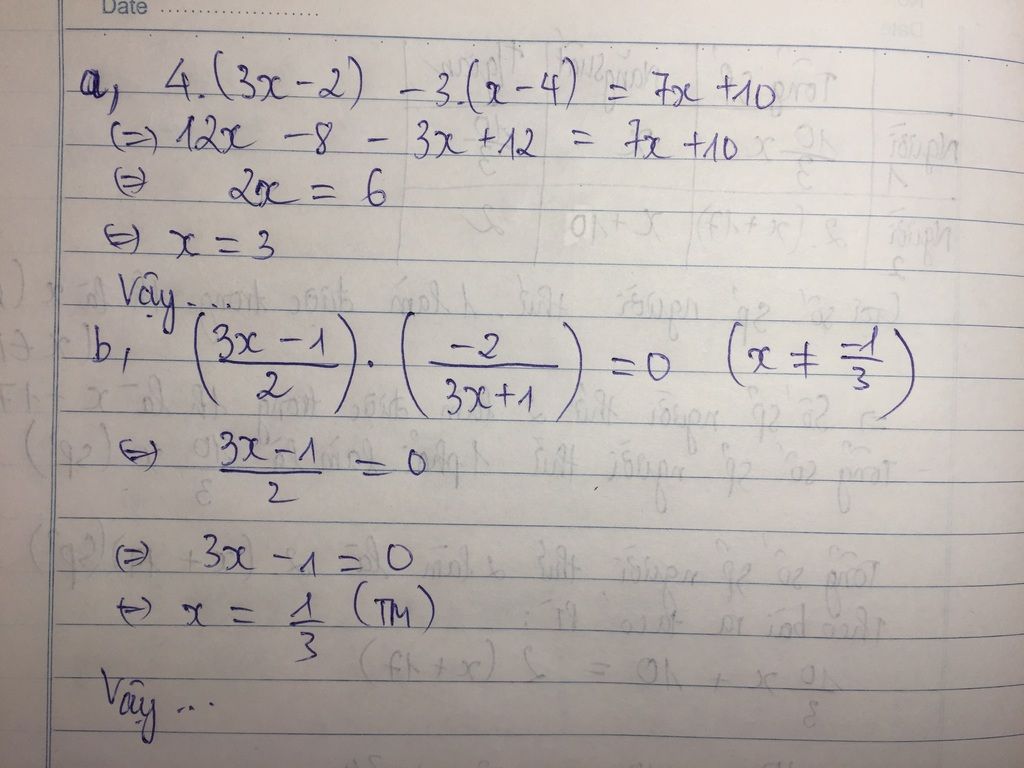 Date ....................
a, 4.(3x-2) -3.(x-4) = 7x +10
(=) 12x -8 - 3x+12 = 7x +10
(=) 2x = 6
(=) x = 3
Vậy....
b, (3x-1/2).(-2/3x+1) =0 (x ≠ -1/3)
(=) 3x-1/2 = 0
(=) 3x -1 = 0
(=) x = 1/3 (TM)
Vậy ...